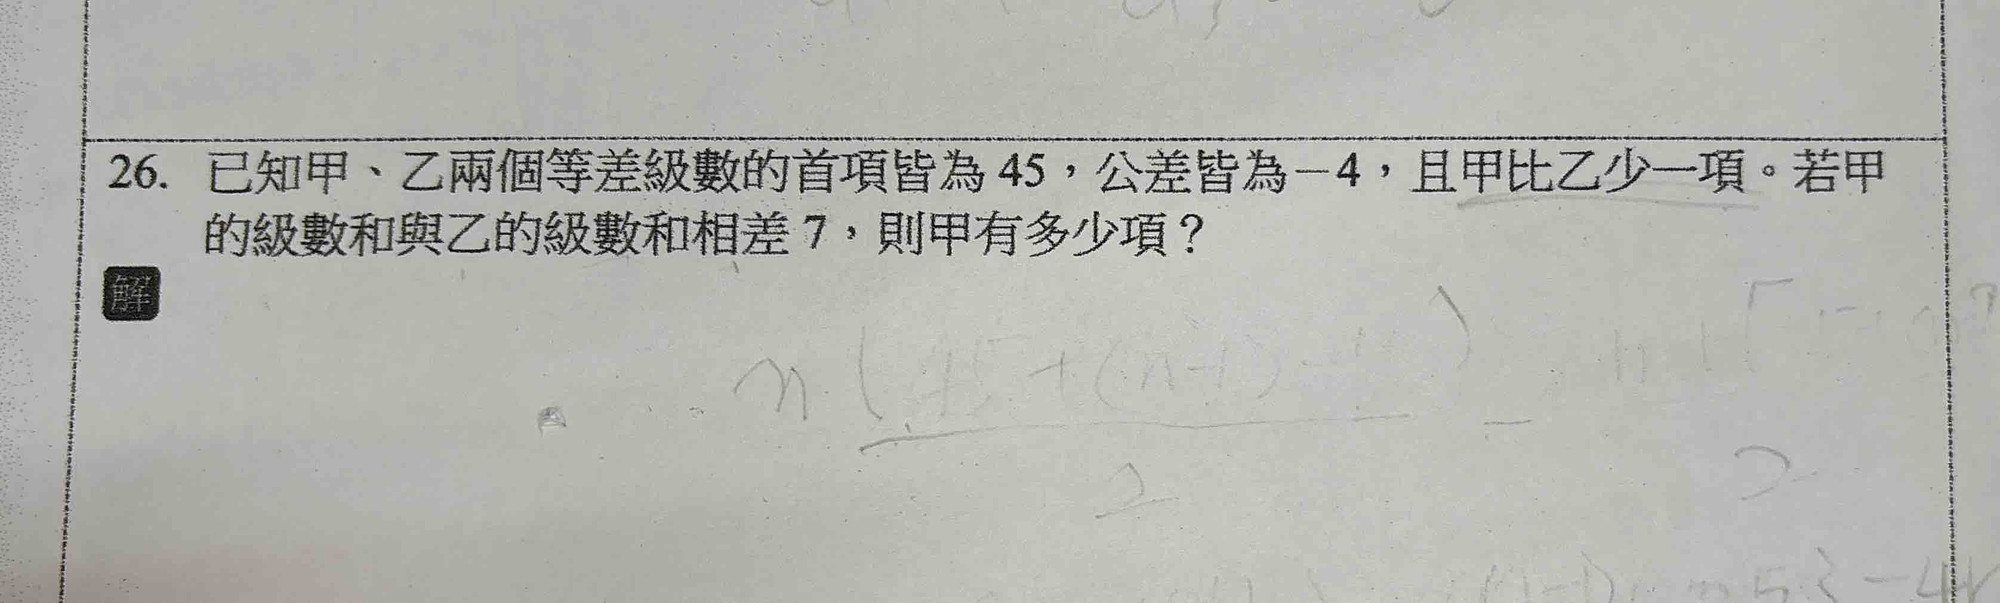 26. 已知甲、乙兩個等差級數的首項皆為45,公差皆為-4,且甲比乙少一項。若甲
的級數和與乙的級數和相差7,則甲有多少項?
解
n(45+(n-1)
2